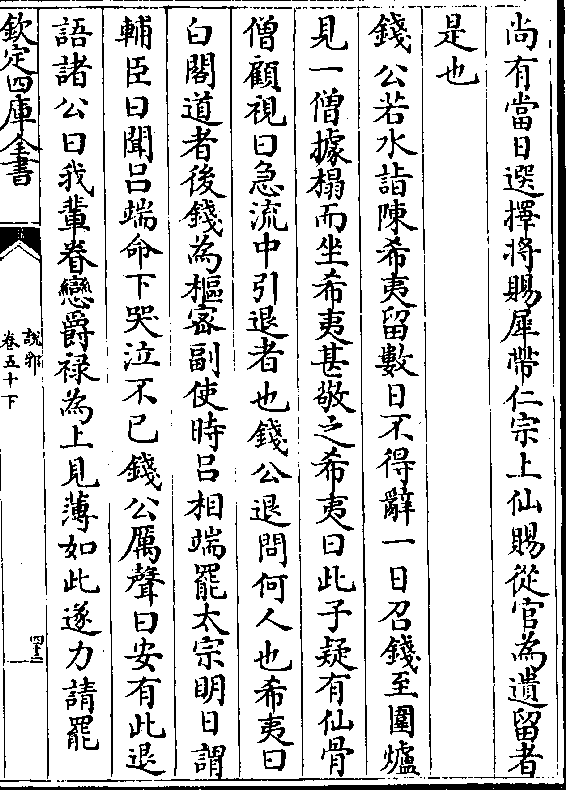 尚有當日選擇將賜犀帶仁宗上仙賜從官為遺留者
是也
錢公若水詣陳希夷留數日不得辭一日召錢至圍爐
見一僧據榻而坐希夷甚敬之希夷曰此子疑有仙骨
僧顧視曰急流中引退者也錢公退問何人也希夷曰
白閣道者後錢為樞密副使時呂相端罷太宗明日謂
輔臣曰聞呂端命下哭泣不已錢公厲聲曰安有此退
語諸公曰我輩眷戀爵祿為上見薄如此遂力請罷
欽定四庫全書
說郛
卷五十下
四十三